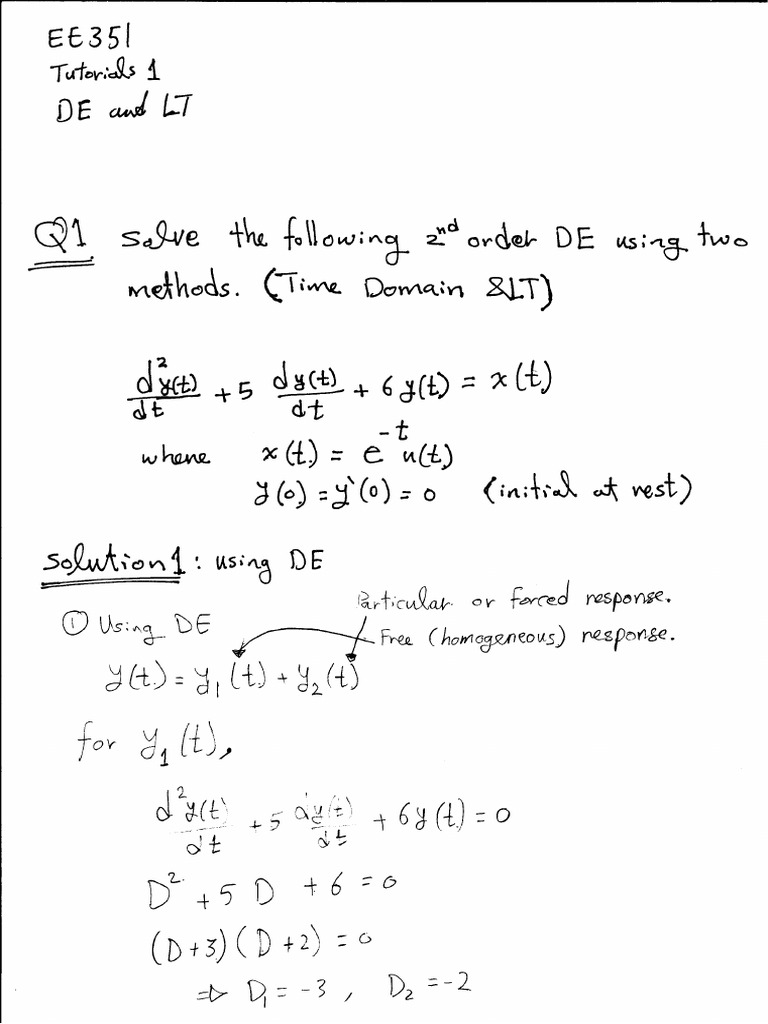 EE351
Tutorials 1
DE and LT
Q1 Solve the following 2nd order DE using two
methods. (Time Domain & LT)
d²y(t)/dt + 5 dy(t)/dt + 6y(t) = x(t)
where x(t) = e^-t u(t)
y(0) = y'(0) = 0 (initial at rest)
Solution1: using DE
Particular or forced response.
① Using DE
Free (homogeneous) response.
y(t) = y₁(t) + y₂(t)
for y₁(t),
d²y(t)/dt + 5 dy(t)/dt + 6y(t) = 0
D² + 5D + 6 = 0
(D+3)(D+2) = 0
⇒ D₁ = -3, D₂ = -2